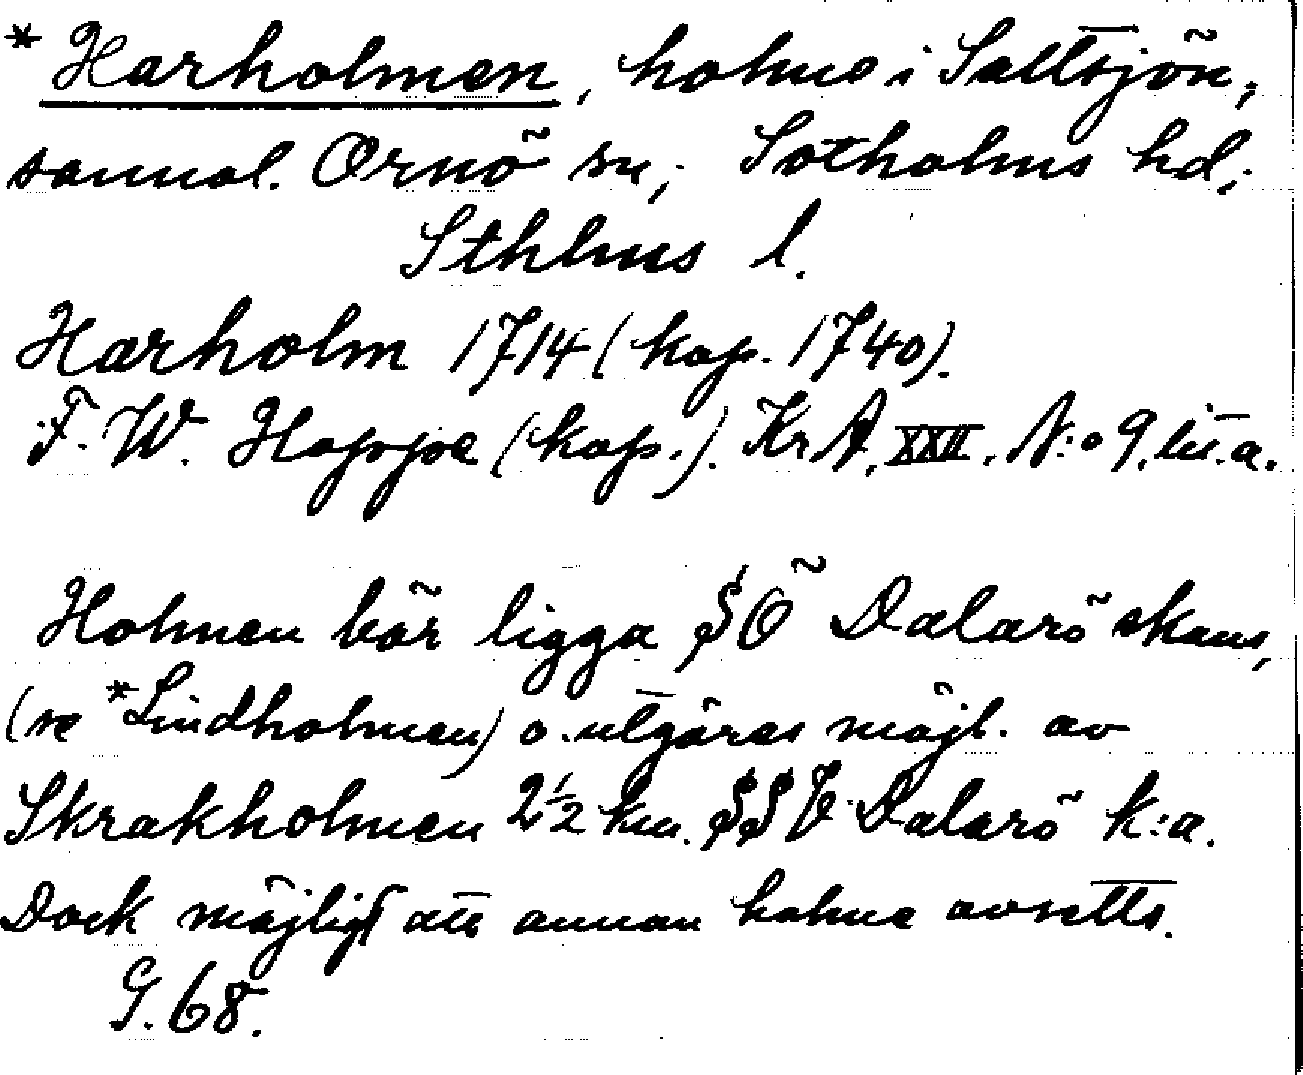 * Harholmen, holme i Saltsjön,
sannol. Ornö sn, Sotholms hd,
Sthlms l.
Harholm 1714 (kop. 1740).
F. W. Hoppe (kop.). Kr A, XXII, N:o 9, litt. a.
Holmen bör ligga SÖ Dalarö skans,
(se *Lindholmen) o. utgöres möjl. av
Skrakholmen 2½ km. SSV Dalarö k:a.
Dock möjligt att annan holme avsetts.
G. 68.